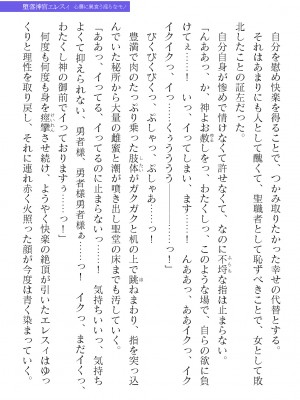 堕落神官エレスィ 心臓に巣食う淫らなモノ
自分を慰め快楽を得ることで、つかみ取りたかった幸せの代替とする。
それはあまりにも人として醜くて、聖職者として恥ずべきことで、女として敗
北したことの証左だった。
自分自身が惨めで情けなくて許せなくて、なのに不埒な指は止まらない。
「んああっ、か、神よお赦しをっ、わたくしっ、このような場で、自らの欲に負
けてぇ……！　いっ、イってしまい、ます……！　んああっ、ああイクっ、
イクイクっ、イっ……くぅうううう
びくびくびくっ、ぷしゃっ、ぷしゃあ……っ！
豊満で肉のたっぷり乗った肢体がガクガクと机の上で跳ねまわり、指を突っ込
んでいた秘所から大量の雌蜜と潮が噴き出し聖堂の床までも汚していく。
「ああっ、イってる、イってるのに止まらないっ……！　気持ちいいっ、気持ち
よくて抑えられない、勇者様、勇者様勇者様ぁ……っ！　イクっ、まだイくっ、
わたくし神の御前でイっておりますぅ……っ！」
何度も何度も身を痙攣させ続け、ようやく快楽の絶頂が引いたエレスィはゆっ
くりと理性を取り戻し、それに連れ赤く火照った顔が今度は青く染まっていく。